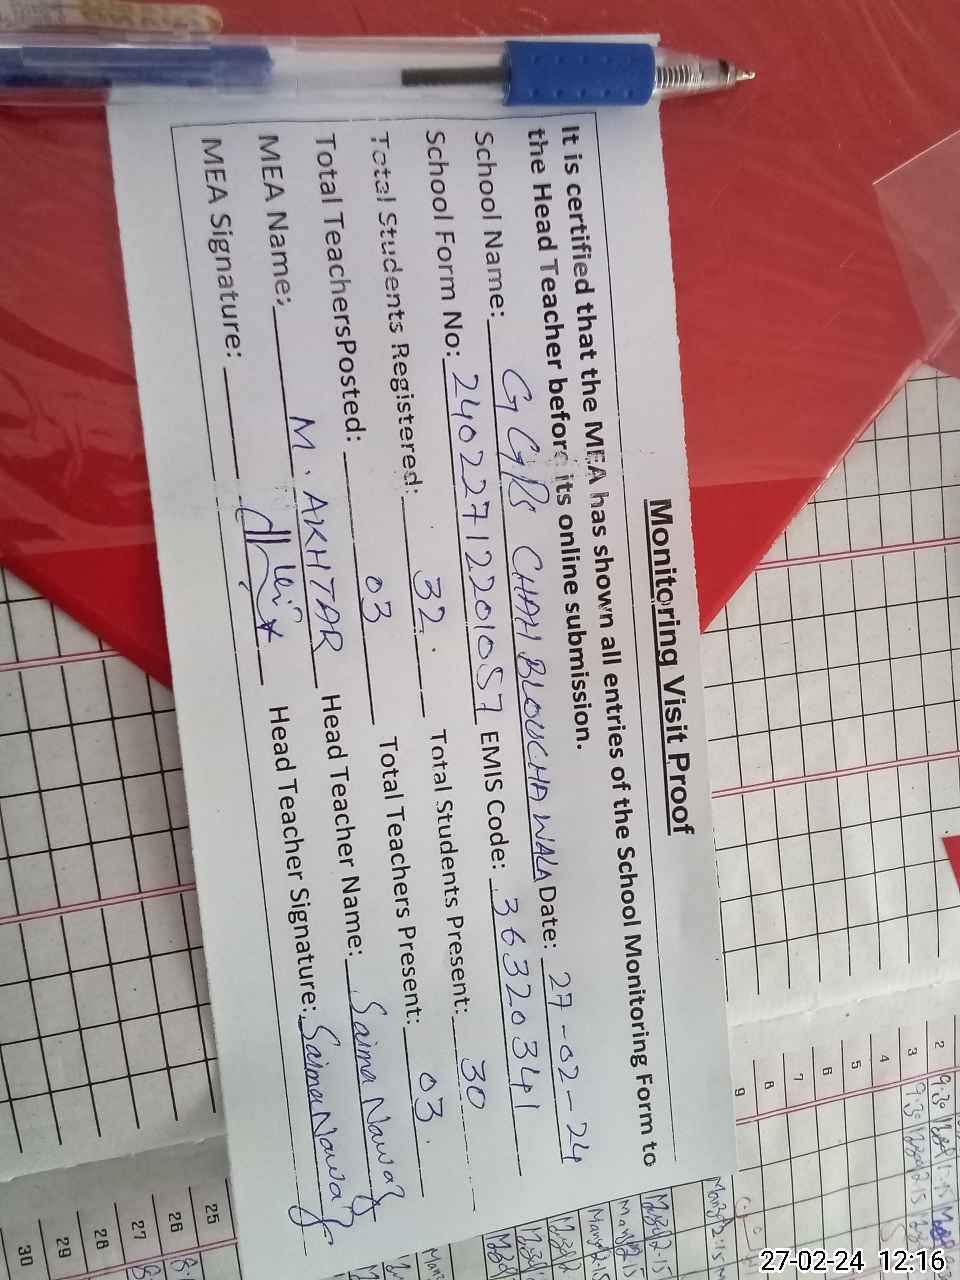 Monitoring Visit Proof
It is certified that the MEA has shown all entries of the School Monitoring Form to
the Head Teacher before its online submission.
School Name: GGPS CHAH BLOUCHAN WALA Date: 27-02-24
School Form No: 24022712201057 EMIS Code: 36320341
Total Students Registered: 32 Total Students Present: 30
Total TeachersPosted: 03 Total Teachers Present: 03
MEA Name: M. AKHTAR Head Teacher Name: Saima Nawaz
MEA Signature: Head Teacher Signature: Saima Nawaz
2 9.30
3 9.30
4
5
6
7
8
9
25
26
27
28
29
30
27-02-24 12:16